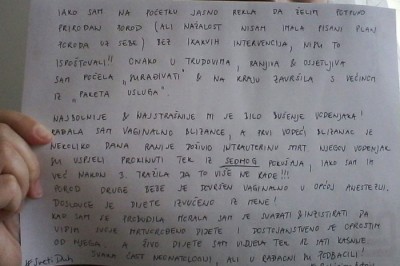 IAKO SAM NA POČETKU JASNO REKLA DA ŽELIM POTPUNO
PRIRODAN POROD (ALI NAŽALOST NISAM IMALA PISANI PLAN
PORODA UZ SEBE) BEZ IKAKVIH INTERVENCIJA, NISU TO
ISPOŠTOVALI!! ONAKO U TRUDOVIMA, RANJIVA & OSJETLJIVA
SAM POČELA "SURAĐIVATI" & NA KRAJU ZAVRŠILA S VEĆINOM
IZ "PAKETA USLUGA".
NAJBOLNIJE & NAJSTRAŠNIJE MI JE BILO BUŠENJE VODENJAKA!
RAĐALA SAM VAGINALNO BLIZANCE, A PRVI VODEĆI BLIZANAC JE
NEKOLIKO DANA RANIJE DOŽIVIO INTRAUTERINU SMRT. NJEGOV VODENJAK
SU USPJELI PROKINUTI TEK IZ SEDMOG POKUŠAJA, IAKO SAM IH
VEĆ NAKON 3. TRAŽILA DA TO VIŠE NE RADE!!!
POROD DRUGE BEBE JE ZAVRŠEN VAGINALNO U OPĆOJ ANESTEZIJI.
DOSLOVCE JE DIJETE IZVUČENO IZ MENE!
KAD SAM SE PROBUDILA MORALA SAM SE SVAĐATI & INZISTIRATI DA
VIDIM SVOJE MRTVOROĐENO DIJETE I DOSTOJANSTVENO SE OPROSTIM
OD NJEGA. A ŽIVO DIJETE SAM VIDJELA TEK 12 SATI KASNIJE.
SVAKA ČAST NEONATOLOGIJI, ALI U RAĐAONI M PODBACILI!
# Sveti Duh